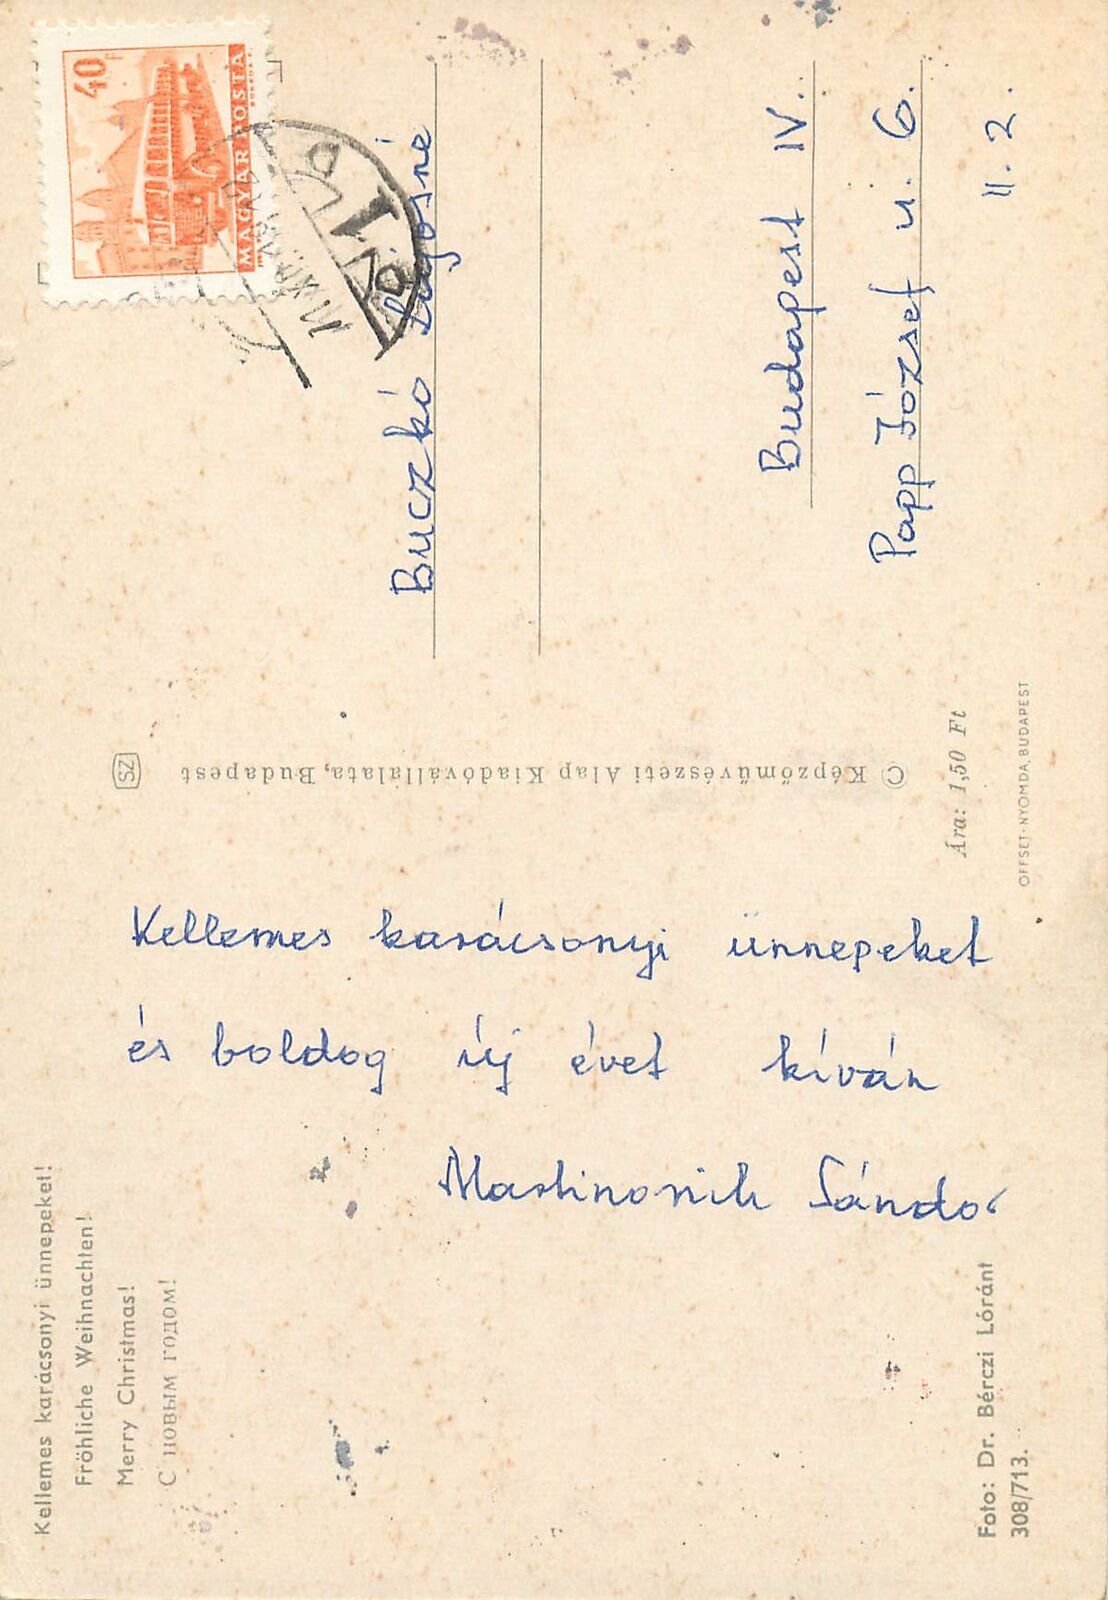 Kellemes karácsonyi ünnepeket!
Fröhliche Weihnachten!
Merry Christmas!
С новым годом!
Kellemes karácsonyi ünnepeket
és boldog új évet kíván
Sándor
Foto: Dr. Bérczi Lóránt
308/713.
SZ
© Képzőművészeti Alap Kiadóvállalata, Budapest
Ára: 1,50 Ft
OFFSET-NYOMDA, BUDAPEST
40 F
MAGYAR POSTA
Buczkó Lajosné
Budapest IV.
Papp József u. 6.
II. 2.